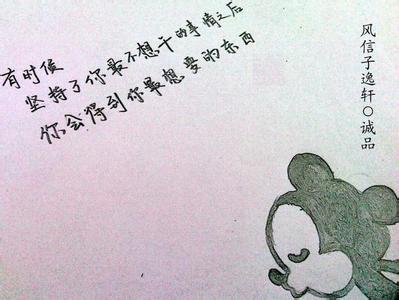 有时候
坚持了你最不想干的事情之后
你会得到你最想要的东西
风信子逸轩〇诚品